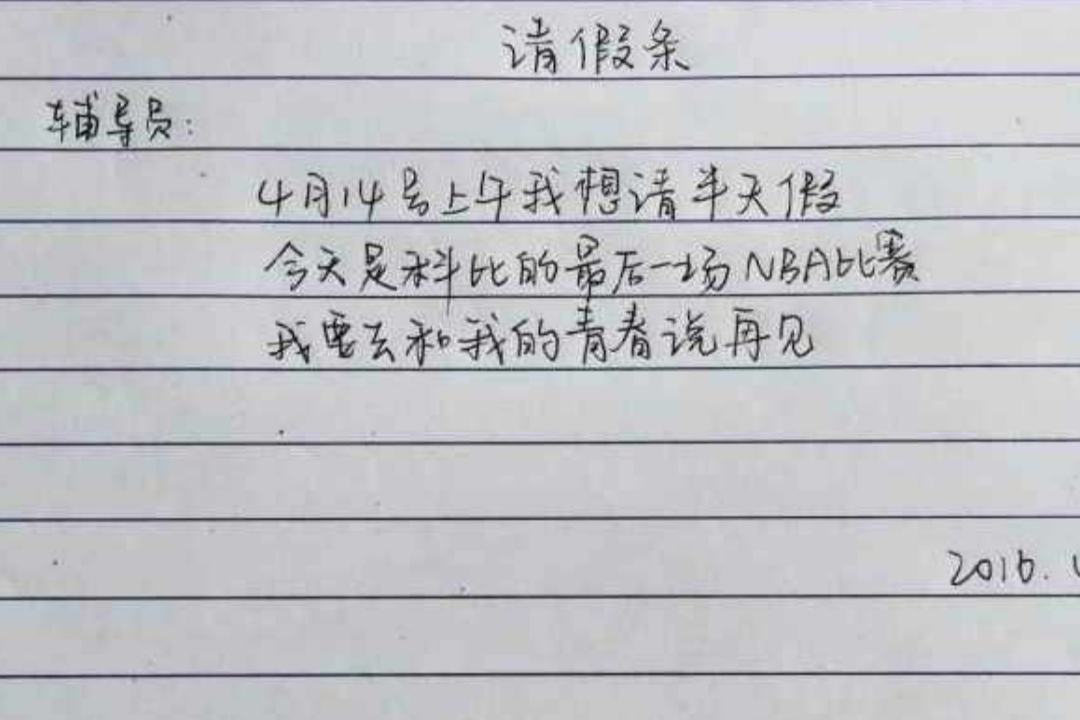 请假条
辅导员:
4月14号上午我想请半天假
今天是科比的最后一场NBA比赛
我要去和我的青春说再见
2016.